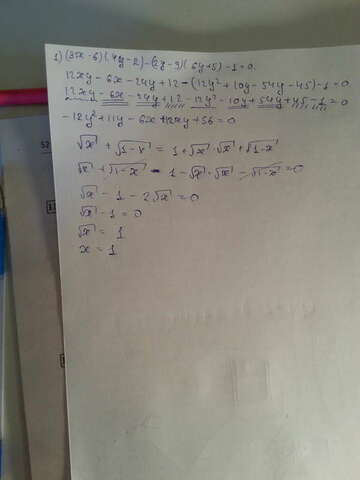 1) (3x-6)(4y-2)-(2y-9)(6y+5)-1=0.
12xy-6x-24y+12-(12y²+10y-54y-45)-1=0
12xy-6x-24y+12-12y²-10y+54y+45-1=0
-12y²+11y-6x+12xy+56=0
√x + √1-x = 1+√x·√x+√1-x
√x + √1-x - 1-√x·√x-√1-x=0
√x - 1 - 2√x = 0
√x - 1 = 0
√x = 1
x = 1